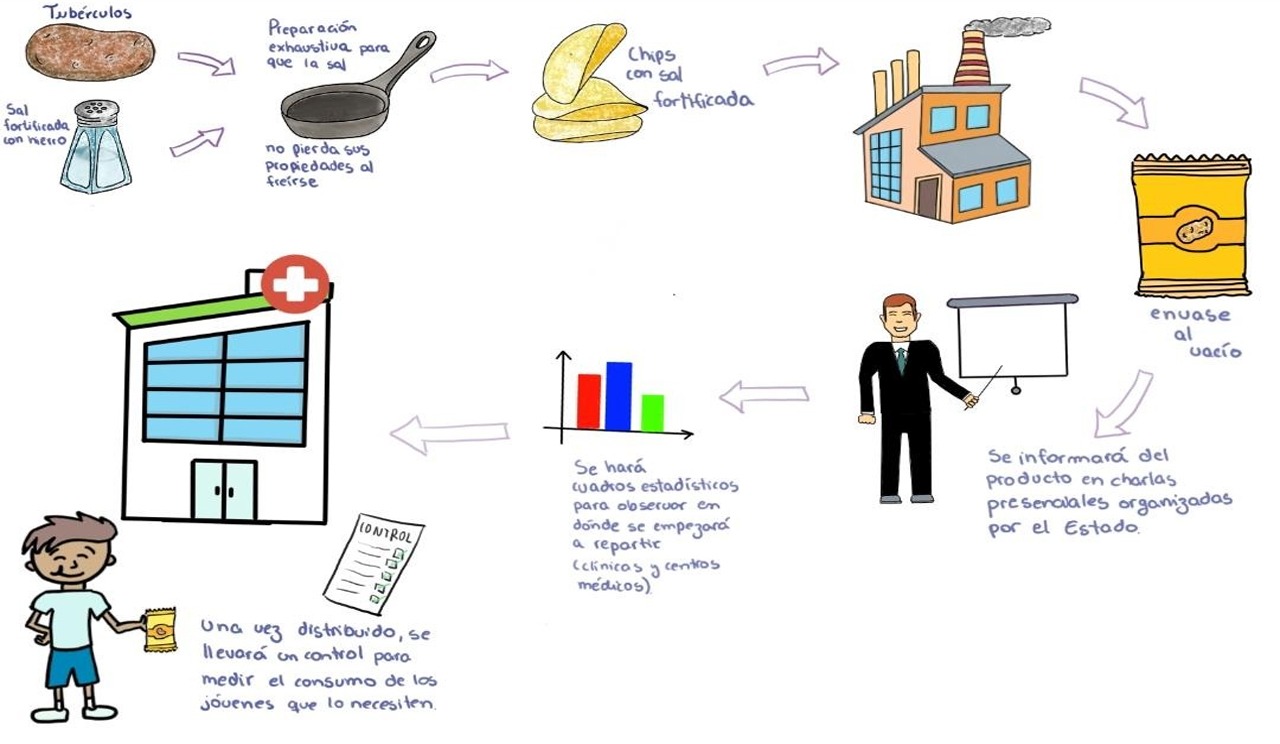 Tubérculos
Sal
fortificada
con hierro
Preparación
exhaustiva para
que la sal
no pierda sus
propiedades al
freírse
Chips
con sal
fortificada
envase
al
vacío
Se informará del
producto en charlas
presenciales organizadas
por el Estado.
Se hará
cuadros estadísticos
para observar en
dónde se empezará
a repartir
(clínicas y centros
médicos).
CONTROL
Una vez distribuido, se
llevará un control para
medir el consumo de los
jóvenes que lo necesiten.